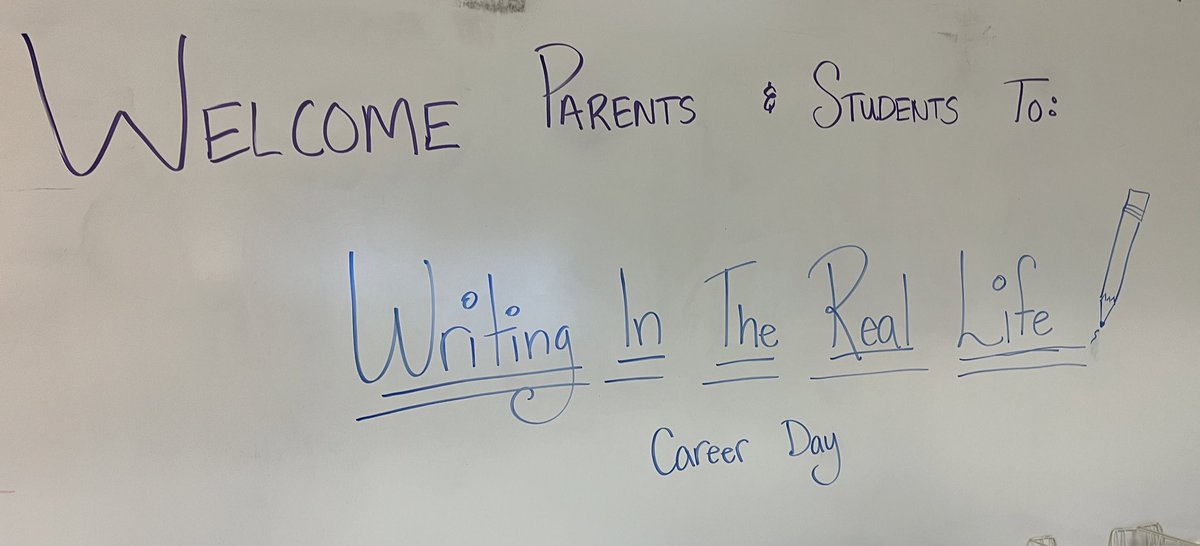 WELCOME PARENTS & STUDENTS TO:
Writing In The Real Life
Career Day